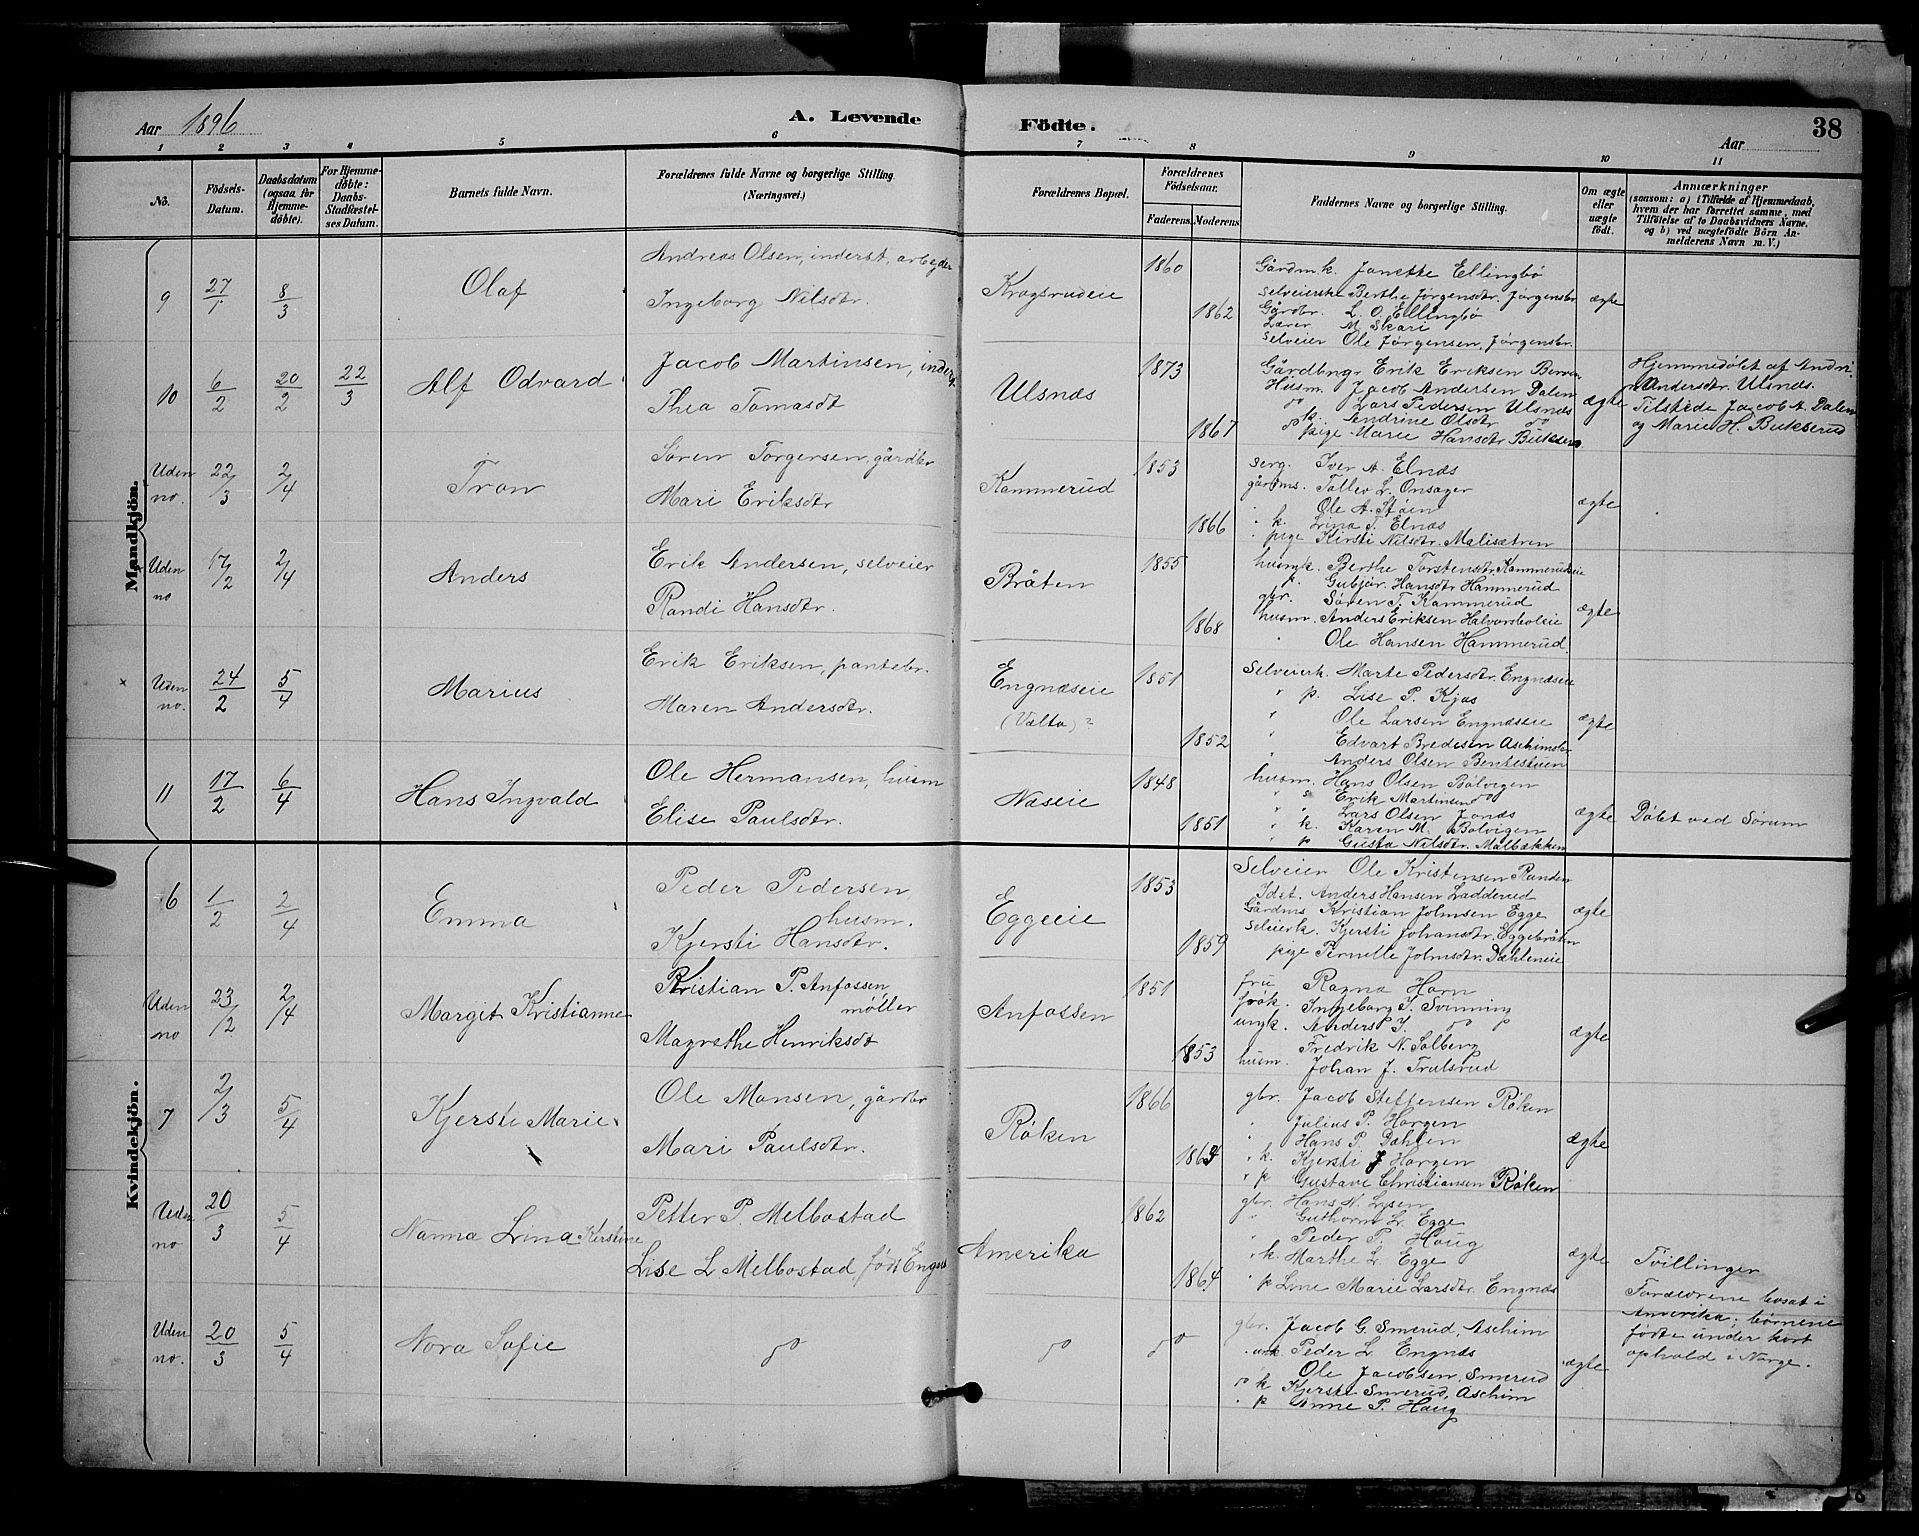 Aar 1896 A. Levende Födte. Aar 38
1 2 3 4 5 6 7 8 9 10 11
No. Födsels-Datum. Daabsdatum (ogsaa for Hjemmedöbte). For Hjemmedöbte: Daabs-Stadfæstelses Datum. Barnets fulde Navn. Forældrenes fulde Navne og borgerlige Stilling. (Næringsvei.) Forældrenes Bopæl. Forældrenes Födselsaar. Faderens. Moderens. Faddernes Navne og borgerlige Stilling. Om ægte eller uægte födt. Anmærkninger (saasom: a) i Tilfælde af Hjemmedaab, hvem der har forrettet samme, med Tilföielse af to Daabsvidners Navne, og b) ved uægtefödte Börn Anmelderens Navn m. V.)
Mandkjön.
9 27/1 8/3 Olaf
Andreas Olsen, inderst, arbejder
Ingeborg Nilsdtr.
Kragsrudeie 1860 1862
Gårdm.k. Janette Ellingbø
Selveierske Berthe Jørgensdtr. Jørgensbr.
Gårdbr. L. O. Ellingbø
Lærer M. Skari
Selveier Ole Jørgensen, Jørgensbr.
ægte
10 6/2 20/2 22/3 Alf Odvard
Jacob Martinsen, inderst
Thea Tomasdt
Ulsnæs 1873 1867
Gårdbngr Erik Eriksen Berven
Husm. Jacob Andersen Dalen
do Lars Pedersen Ulsnæs
k. Andrine Olsdtr do
pige Marie Hansdtr Bukserud
ægte
Hjemmedøbt af Andri
Andersdtr. Ulsnæs.
Tilstede Jacob A. Dalen
og Marie H. Bukserud
Uden no. 22/3 2/4 Tron
Søren Torgersen, gårdbr
Mari Eriksdtr
Kammerud 1853 1866
serg. Iver A. Elnæs
gårdms. Tollev L. Onsager
Ole A. Støen
" k. Lina T. Elnæs
" pige Kirsti Nilsdtr. Malisætren
ægte
Uden no 17/2 2/4 Anders
Erik Andersen, selveier
Randi Hansdtr.
Bråten 1855 1868
husmk. Berthe Torstensdtr. Kammerudseie
p. Gubjør Hansdtr Hammerud
gbr. Søren T. Kammerud
husm. Anders Eriksen Halvorsboleie
Ole Hansen Hammerud
ægte
Uden no. 24/2 5/4 Marius
Erik Eriksen, pantebr.
Maren Andersdtr.
Engnæseie
(Valta)?
1851 1852
Selveierk. Marte Pedersdtr. Engnæseie
" p. Lise P. Kjos
" Ole Larsen Engnæseie
" Edvart Bredesen Aschimsbr
" Anders Olsen Benkesteien
ægte
11 17/2 6/4 Hans Ingvald
Ole Hermansen, husm
Elise Paulsdtr.
Næseie 1848 1851
husm. Hans Olsen Bølvigen
" s Erik Martinsen do
" Lars Olsen Jonås
" k. Karen M. Bølvigen
" p Gusta Nilsdtr. Malbækken
ægte Døbt ved Sørum
Kvindekjön.
6 1/2 2/4 Emma
Peder Pedersen
husm.
Kjersti Hansdtr.
Eggeeie 1853 1859
Selveier Ole Kristensen Randen
Idst. Anders Hansen Ladderud
Gårdms Kristian Johnsen Egge
Selveierk. Kjersti Johansdtr. Eggebråten
pige Pernille Johnsdtr. Dæhleneie
ægte
Uden no 23/2 2/4 Margit Kristianne
Kristian P. Anfossen
møller
Magrethe Henriksdt
Anfossen 1851 1853
fru Ragna Horn
frøk. Ingeborg I. Svinning
ungk. Anders I. do
Fredrik N. Solberg
husm. Johan J. Trulsrud
ægte
7 2/3 5/4 Kjersti Marie
Ole Monsen, gårdbr
Mari Paulsdtr.
Røken 1866 1864
gbr. Jacob Steffensen Røken
" Julius P. Horgen
" Hans P. Dæhlen
" k. Kjersti J Horgen
" p Gustave Christiansen Røken
ægte
Uden no 20/3 5/4 Nanna Lina Kirstine
Petter P. Melbostad
Lise L Melbostad, født Engnæs
Amerika 1862 1864
gbr. Hans N. Lysen
" Guthorm L. Egge
" Peder P. Haug
" k. Marthe L. Egge
" p Line Marie Larsdtr. Engnæs
ægte
Tvillinger
Forældrene bosat i
Amerika; børnene
fødte under kort
ophold i Norge.
Uden no. 20/3 5/4 Nora Sofie
do do do
gbr. Jacob G. Smerud, Aschim
" unk. Peder L. Engnæs
Ole Jacobsen Smerud
do k Kjersti Smerud, Aschim
" p Anne P. Haug
ægte